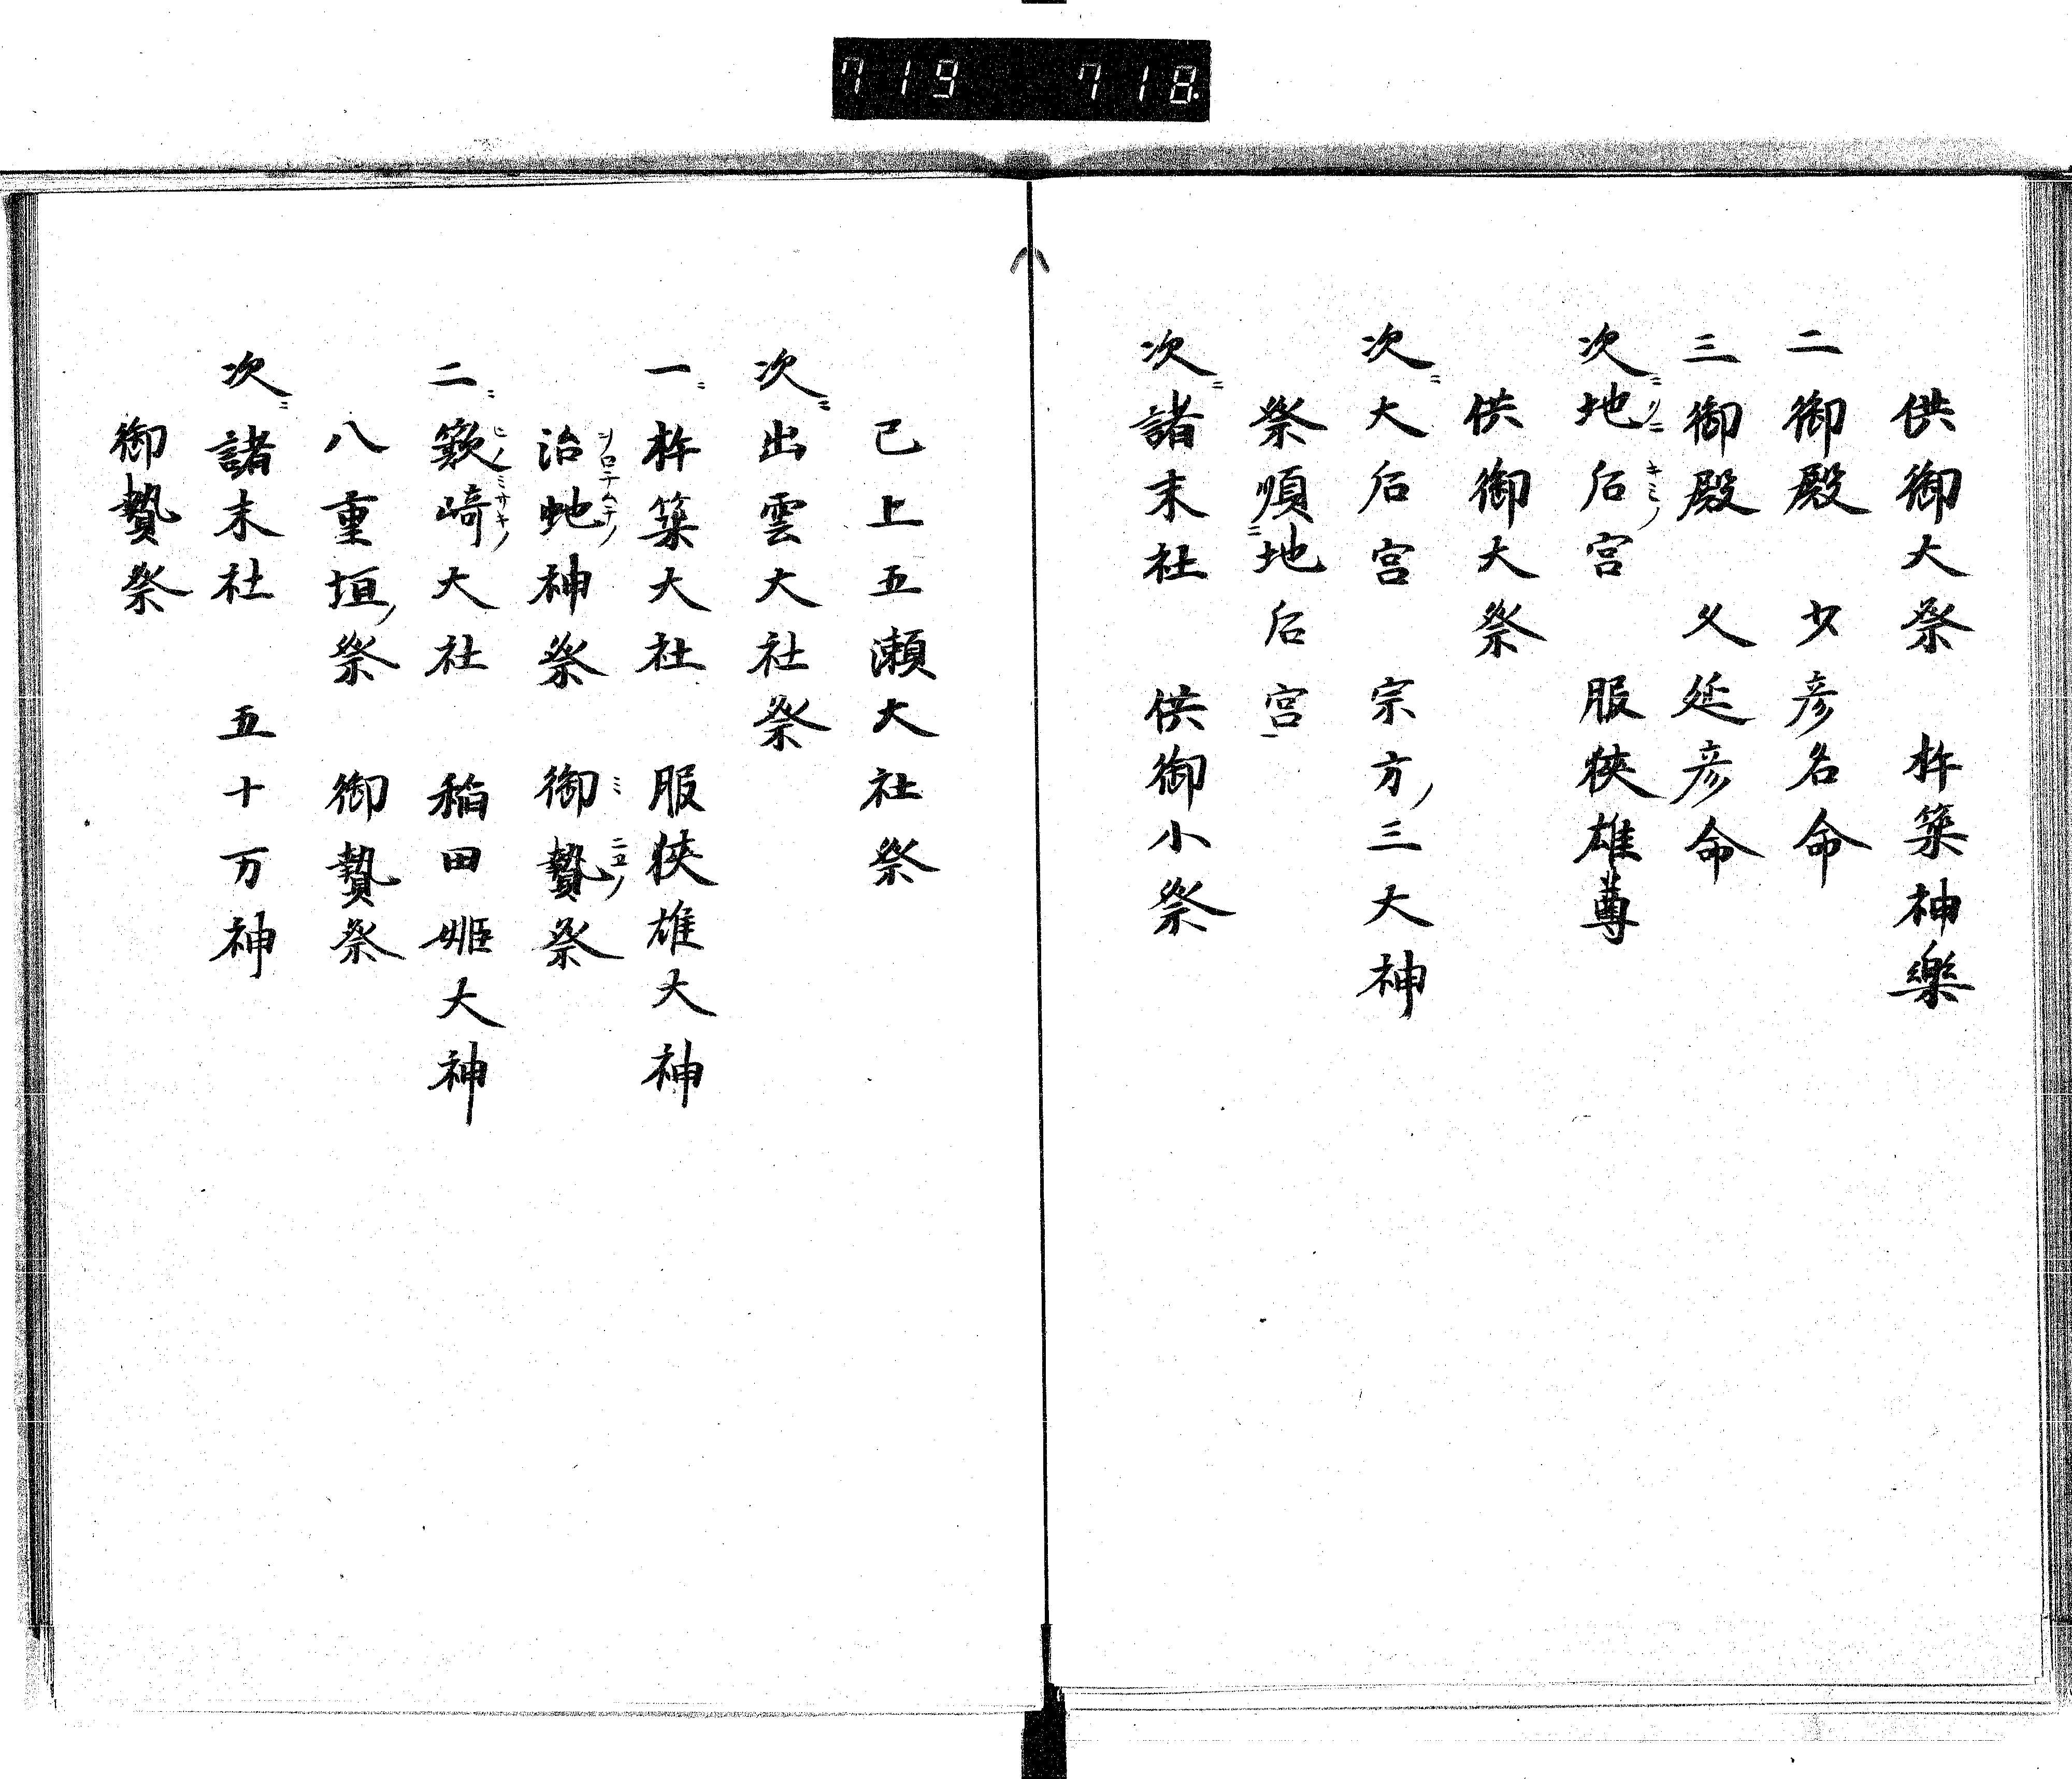 719 718
供御大祭 杵築神樂
二御殿 少彦名命
三御殿 久延彦命
次ニ地后宮 服狹雄尊
供御大祭
次ニ大后宮 宗方ノ三大神
祭順ニ地后宮
次ニ諸末社 供御小祭
已上五瀬大社祭
次ニ出雲大社祭
一ニ杵築大社 服狹雄大神
治虵神祭 御贄祭
二ニ簸﨑大社 稲田姫大神
八重垣ノ祭 御贄祭
次ニ諸末社 五十万神
御贄祭